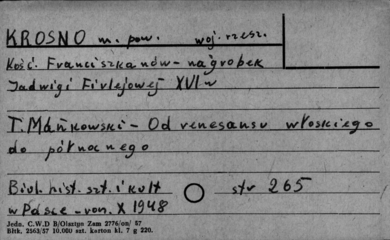 KROSNO m. pow. woj. rzesz.
Kość. Franciszkanów - nagrobek
Jadwigi Firlejowej XVI w
T. Mańkowski - Od renesansu włoskiego
do północnego
Biul. hist. szt. i kult str 265
w Polsce - rocz. X 1948
Jedn. C.W.D B/Olsztyn Zam 2776/on/ 57
Bltk. 2563/57 10.000 szt. karton kl. 7 g 220.